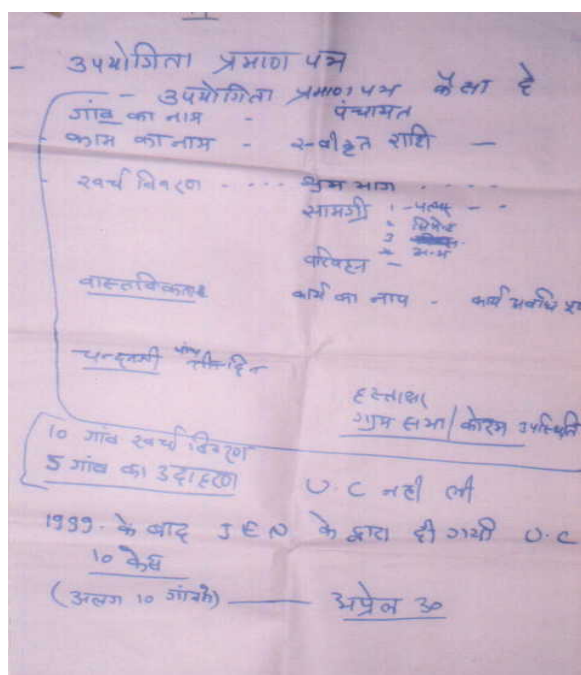 - उपयोगिता प्रमाण पत्र
- उपयोगिता प्रमाण पत्र कैसा है
गांव का नाम - पंचायत
- काम का नाम - स्वीकृत राशि -
- खर्च विवरण - . . . . श्रम भाग . . . .
सामग्री 1 - पत्थर - -
2 सिमेन्ट
3
4
परिवहन -
वास्तविकता
कार्य का नाप - कार्य अवधि
तीन दिन
हस्ताक्षर
ग्राम सभा / कोरम उपस्थिति
10 गांव खर्च विवरण
5 गांव का उदाहरण
U.C नही ली
1999. के बाद JEN के द्वारा दी गयी U.C
10 केस
(अलग 10 गांवके) —— अप्रेल 30